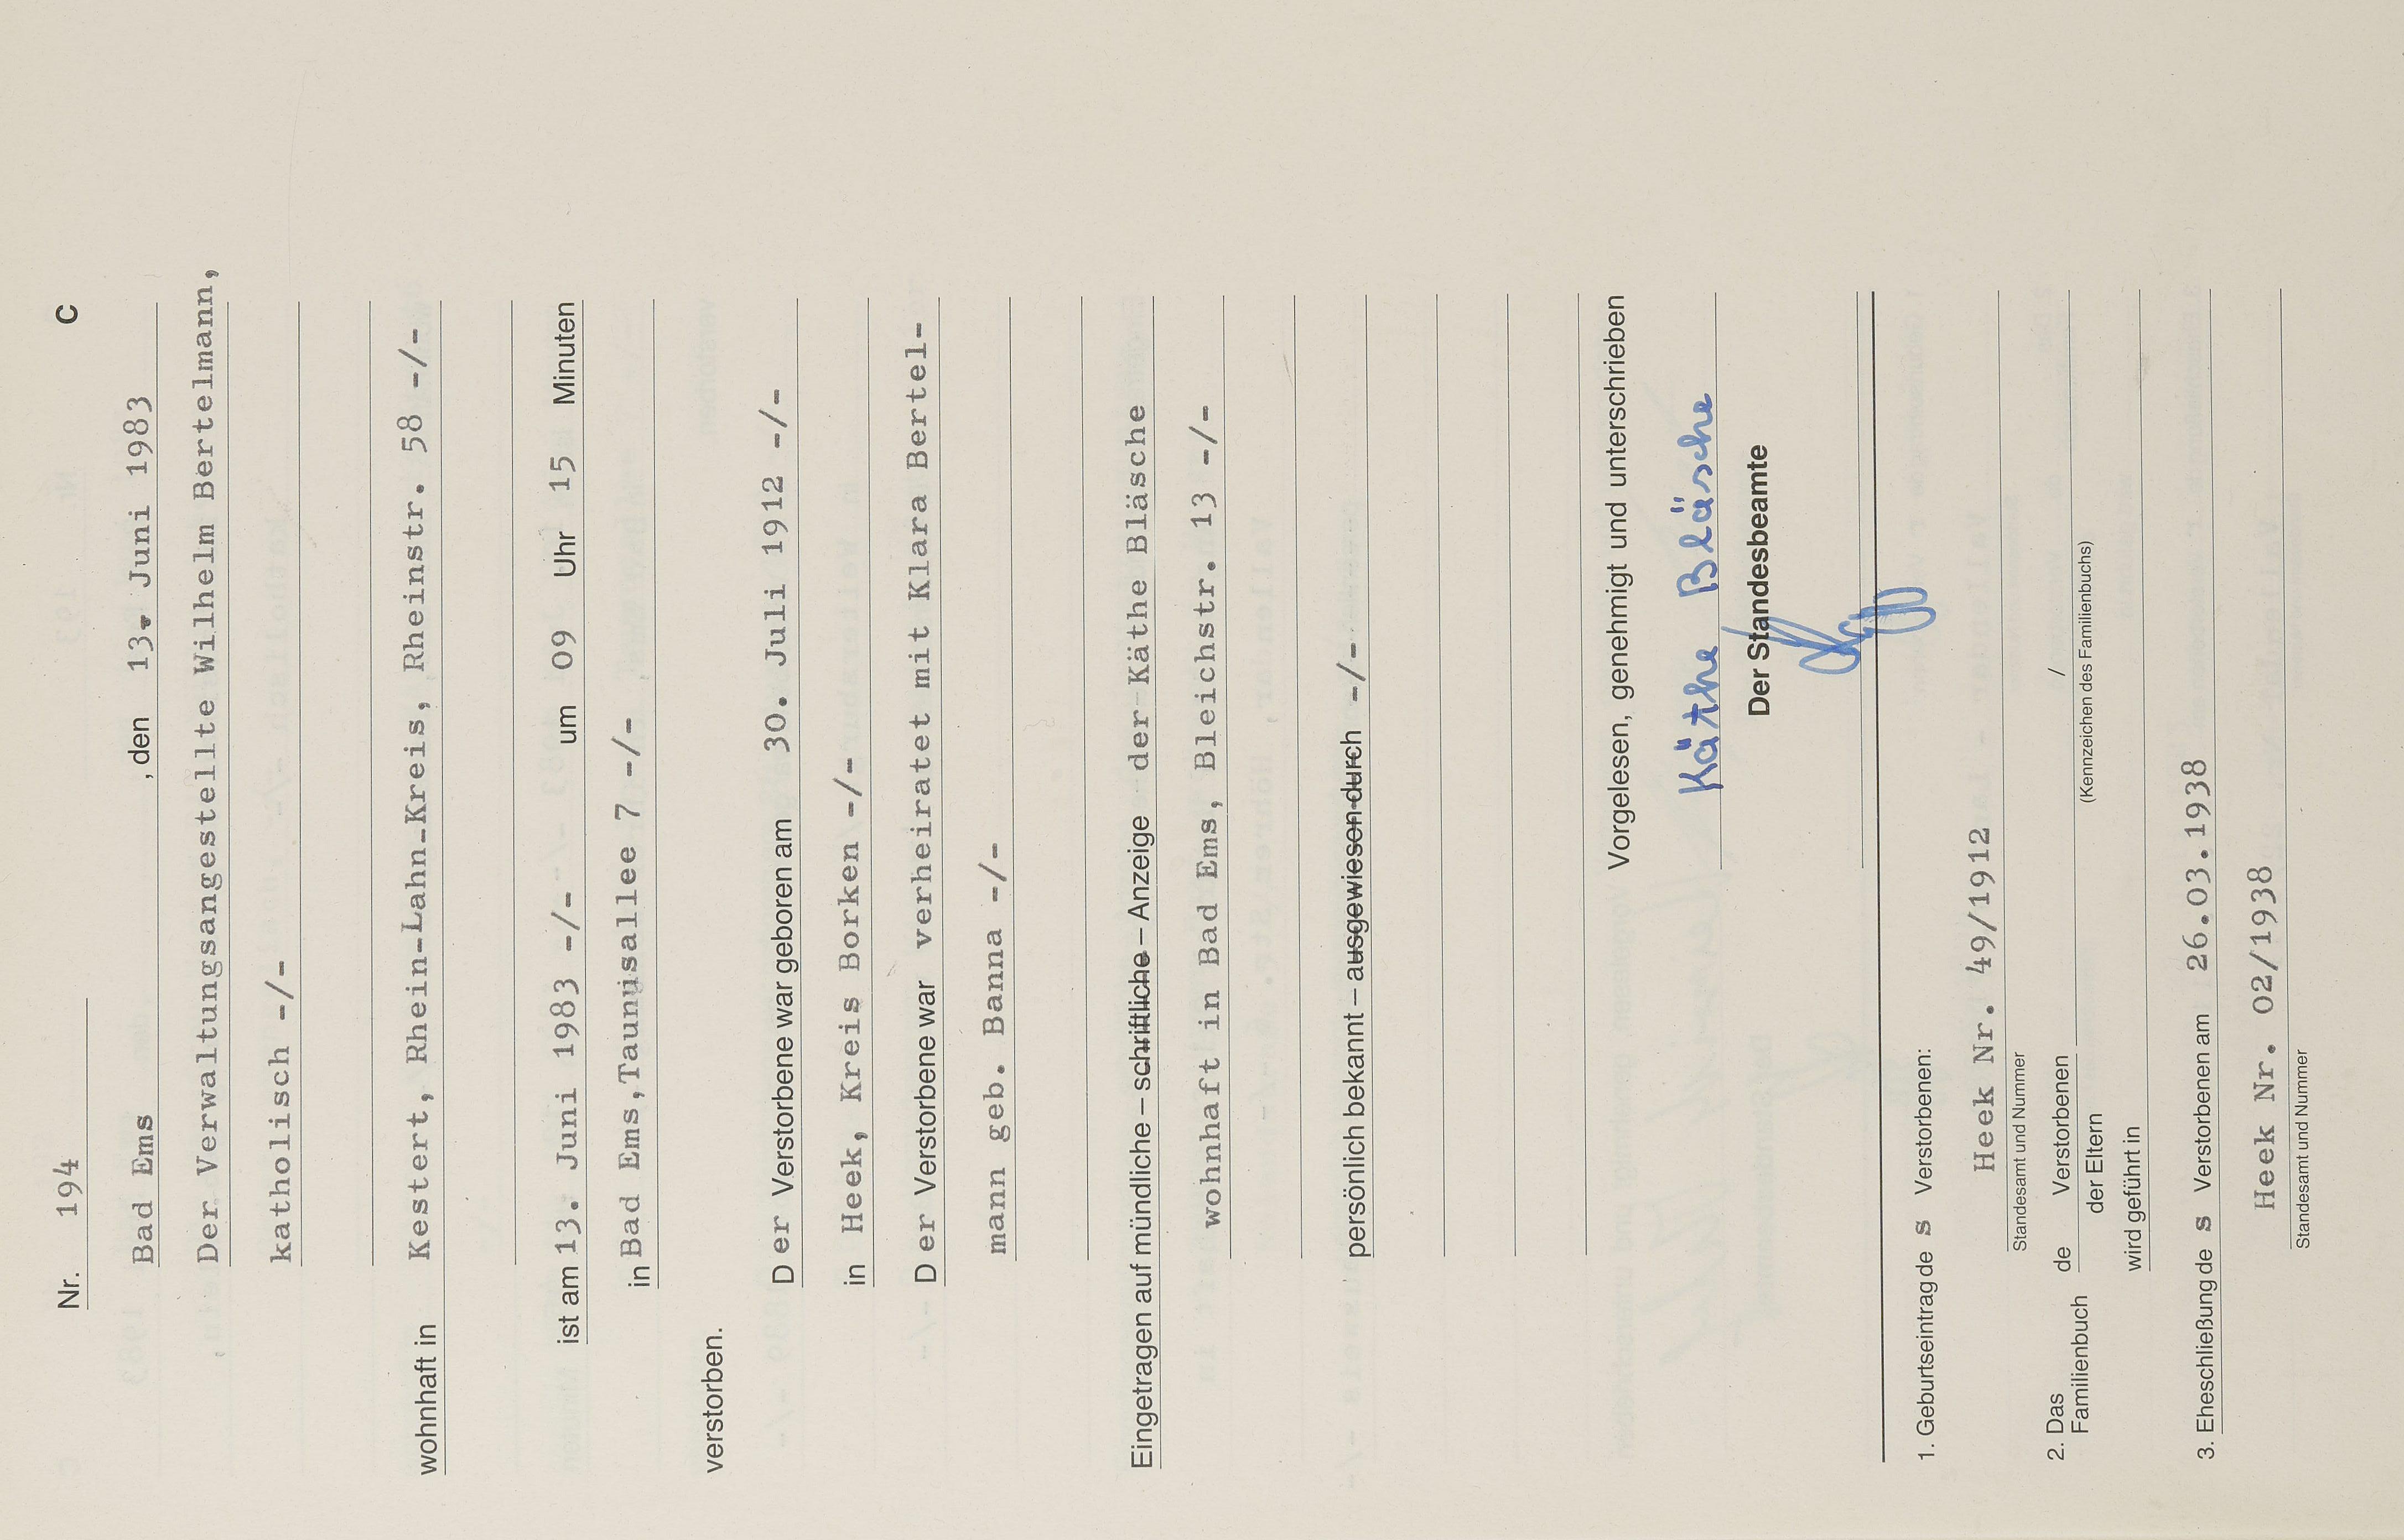 Nr. 194 C
Bad Ems , den 13. Juni 1983
Der Verwaltungsangestellte Wilhelm Bertelmann,
katholisch -/-
wohnhaft in Kestert, Rhein-Lahn-Kreis, Rheinstr. 58 -/-
ist am 13. Juni 1983 -/- um 09 Uhr 15 Minuten
in Bad Ems,Taunusallee 7 -/-
verstorben.
D er Verstorbene war geboren am 30. Juli 1912 -/-
in Heek, Kreis Borken -/-
D er Verstorbene war verheiratet mit Klara Bertel-
mann geb. Banna -/-
Eingetragen auf mündliche – schriftliche – Anzeige der Käthe Bläsche
wohnhaft in Bad Ems, Bleichstr. 13 -/-
persönlich bekannt – ausgewiesen durch -/-
Vorgelesen, genehmigt und unterschrieben
Käthe Bläsche
Der Standesbeamte
1. Geburtseintrag de s Verstorbenen:
Heek Nr. 49/1912
Standesamt und Nummer
2. Das Familienbuch de Verstorbenen /
der Eltern (Kennzeichen des Familienbuchs)
wird geführt in
3. Eheschließung de s Verstorbenen am 26.03.1938
Heek Nr. 02/1938
Standesamt und Nummer